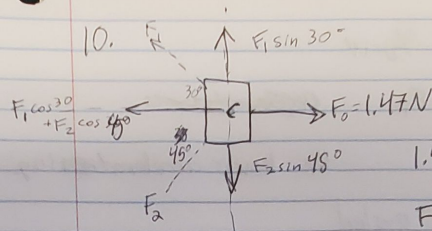 10.
F₁
F₁ sin 30°
30°
F₁ cos 30
+ F₂ cos 45°
F₀ = 1.47 N
45°
F₂ sin 45°
1.
F₂
F